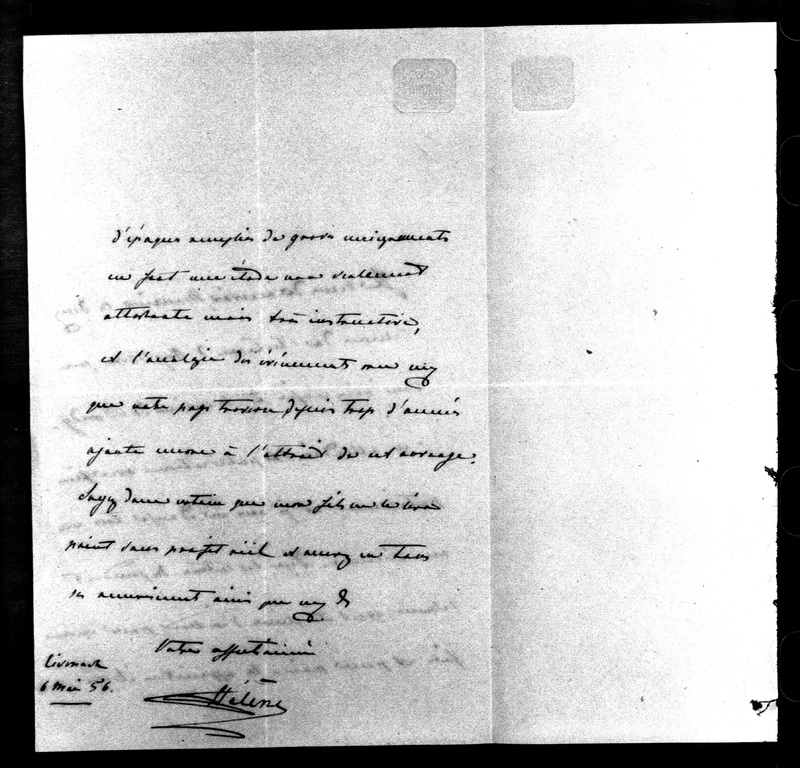 d'époques remplies de graves enseignements
en fait une étude non seulement
attachante mais très instructive,
et l'analogie des événements avec ceux
que notre pays traverse depuis trop d'années
ajoute encore à l'attrait de cet ouvrage.
Soyez donc certain que mon fils ne le lira
point sans profit réel et recevez en tous
ses remerciements ainsi que ceux de
Votre affectionnée
Hélène
Eisenach
6 Mai 56.